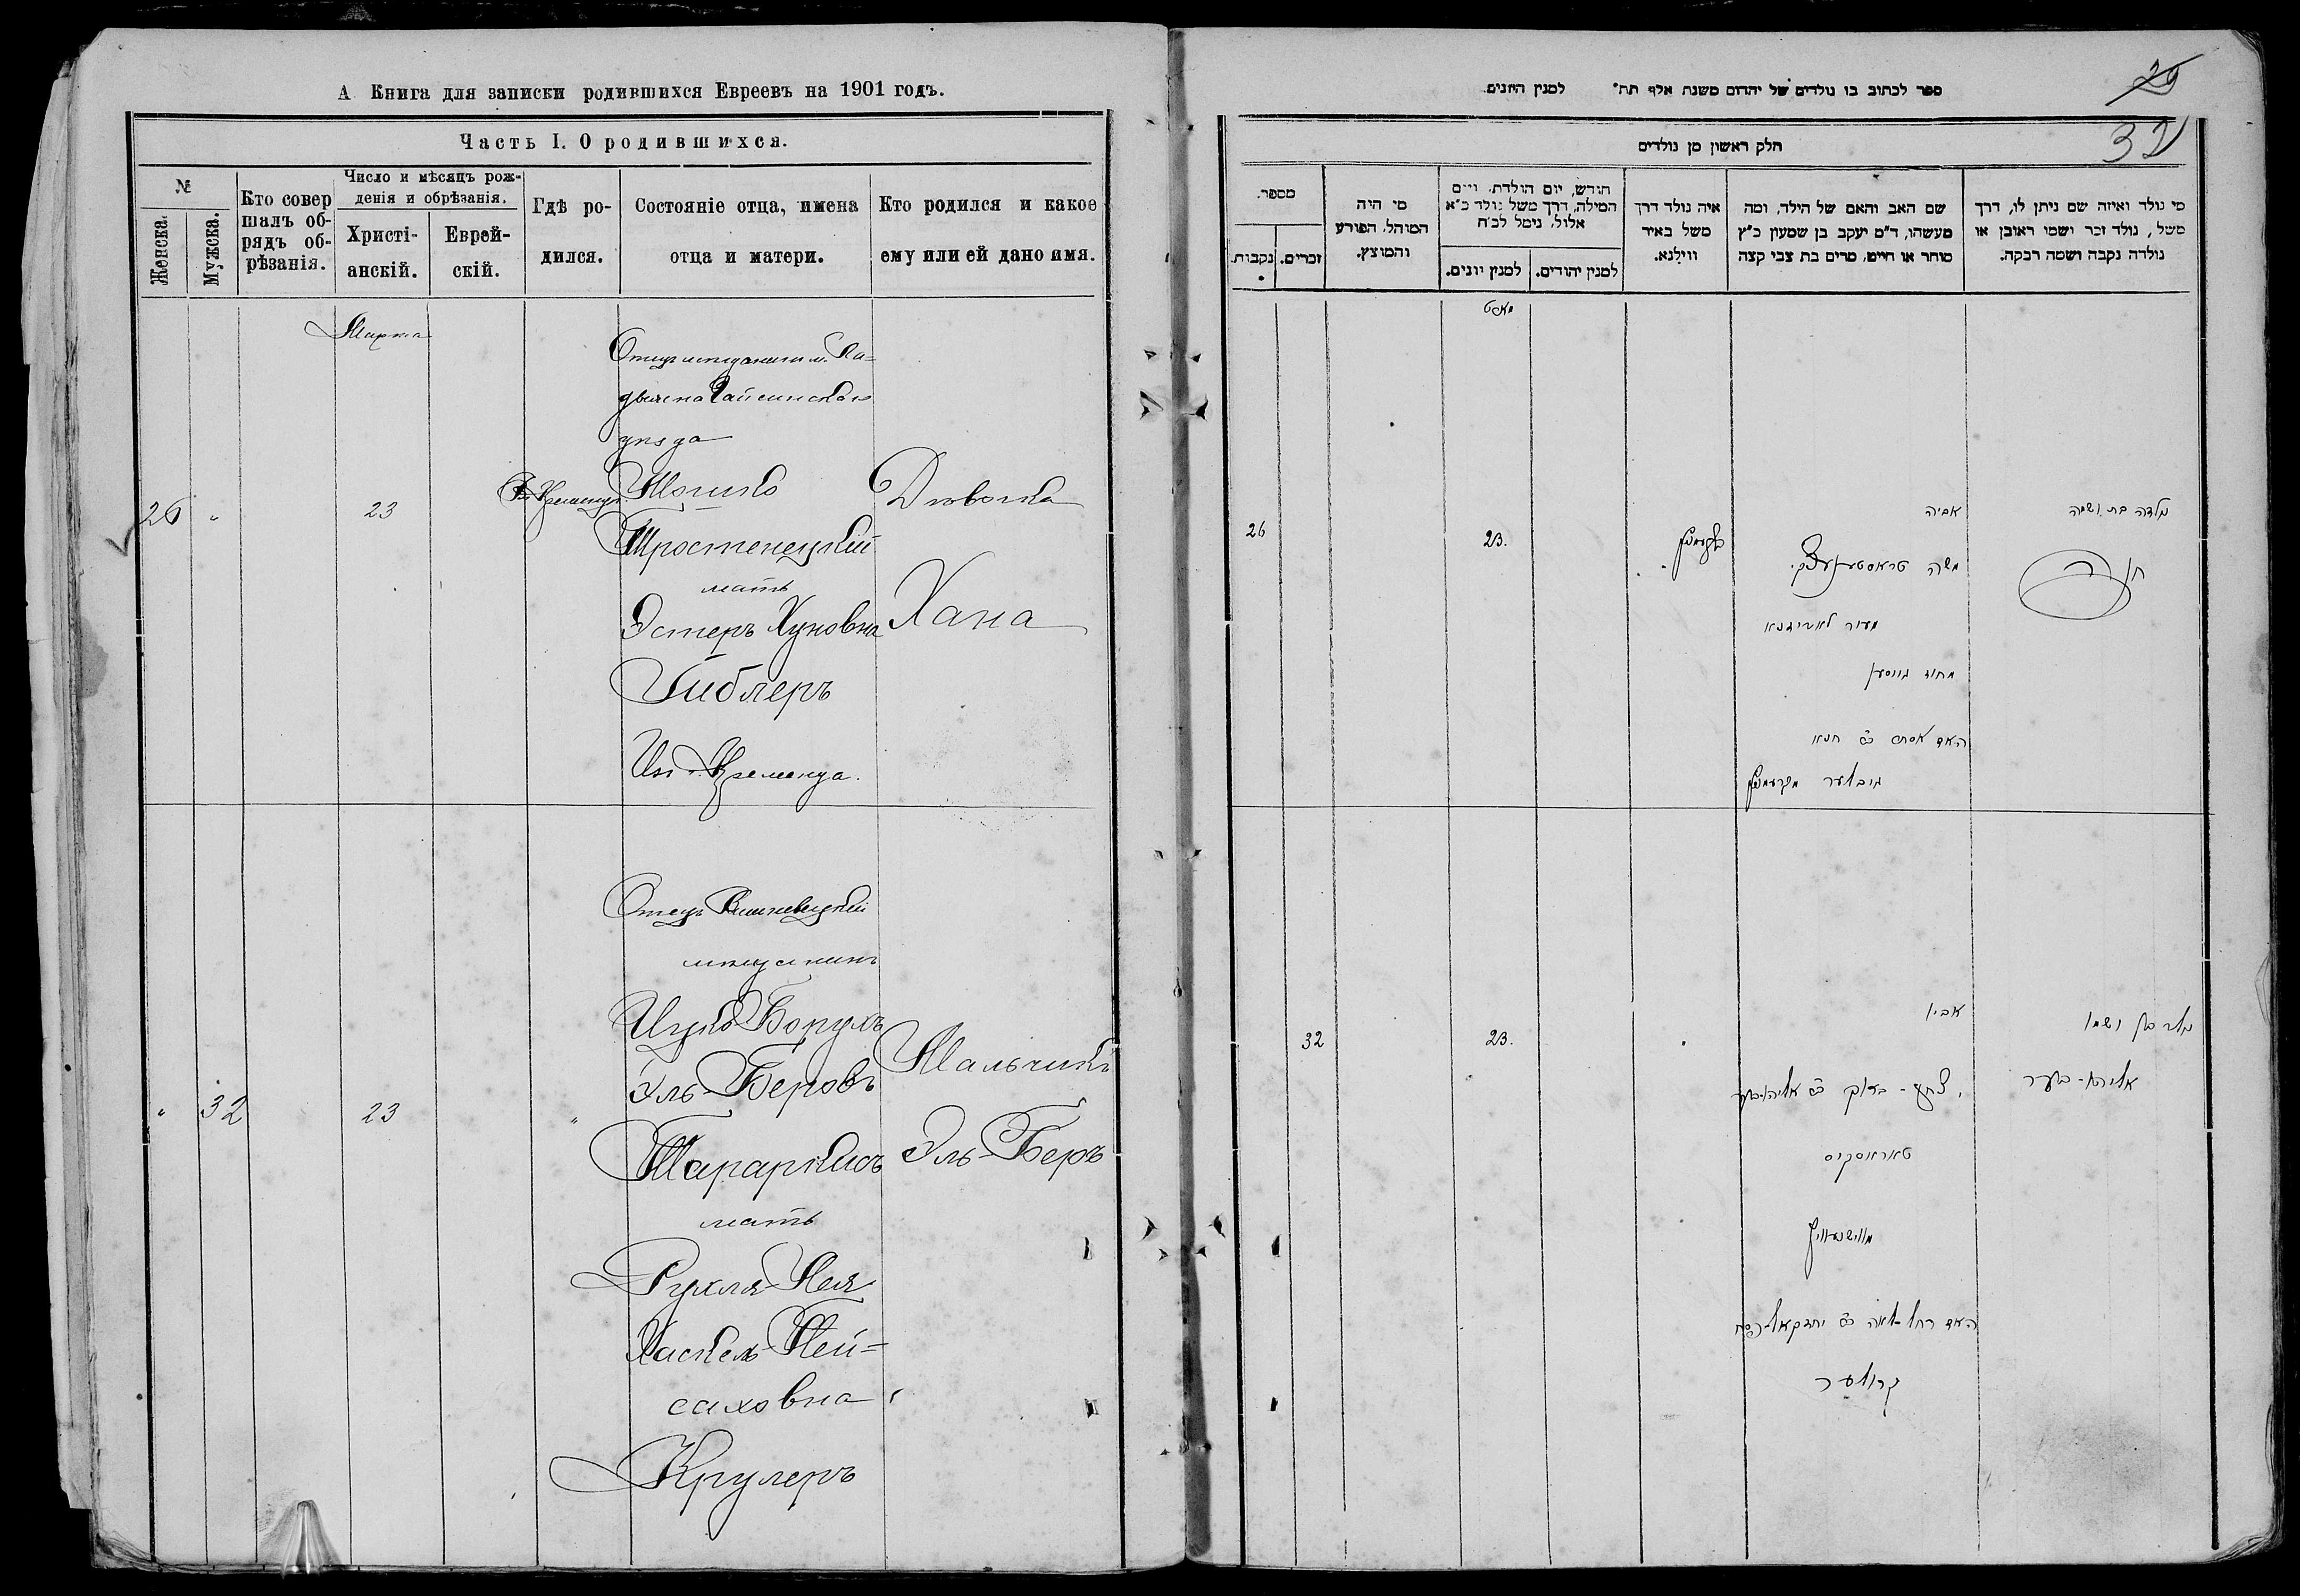 А Книга для записки родившихся Евреевъ на 1901 годъ.
Часть I. О родившихся.
№
Женска.
Мужска.
Кто совер
шалъ об-
рядъ об-
рѣзанія.
Число и мѣсяцъ рож-
денія и обрѣзанія.
Христі-
анскій.
Еврей-
скій.
Гдѣ ро-
дился.
Состояніе отца, имена
отца и матери.
Кто родился и какое
ему или ей дано имя.
Марта
26 "
23
Отецъ мещанинъ м. Ла-
дыжина Гайсинскаго
уѣзда
Мошко
Тростенецкій
мать
Эстеръ Хуновна
Гиблеръ
Изъ Кременца.
Двочка
Хана
" 32
23
"
Отецъ Вишневецкій
мещанинъ
Ицко-Борухъ
Эль-Беровъ
Тарараркисъ
мать
Рухля-Лея
Хаскель-Пей-
саховна
Крулеръ
Мальчикъ
Эль-Беръ
ספר לכתוב בו נולדים של יהדום משנת אלף תת" למנין היונים.
29
32
חלק ראשון מן נולדים
מספר.
נקבות.
זכרים.
מי היה
המוהל, הפורע
והמוצץ.
חודש, יום הולדת, ויום
המילה, דרך משל נולד כ"א
אלול, נימל לכ"ח
למנין יונים.
למנין יהודים.
איה נולד דרך
משל באיר
ווילנא.
שם האב והאם של הילד, ומה
מעשהו, ד"מ יעקב בן שמעון כ"ץ
סוחר או חייט, מרים בת צבי קצה
מי נולד ואיזה שם ניתן לו, דרך
משל, נולד זכר ושמו ראובן או
נולדה נקבה ושמה רבקה.
מארט
26
23.
אביה
משה טראסטינעצקי
האם אסתר
גיבלער מקרעמניץ
נולדה בת ושמה
חנה
32
23.
אביו
יצחק - ברוך אליהו-בער
מווישנעוויץ
האם רחל-לאה יחזקאל-פסח
קרולער
נולד בן ושמו
אליהו-בער